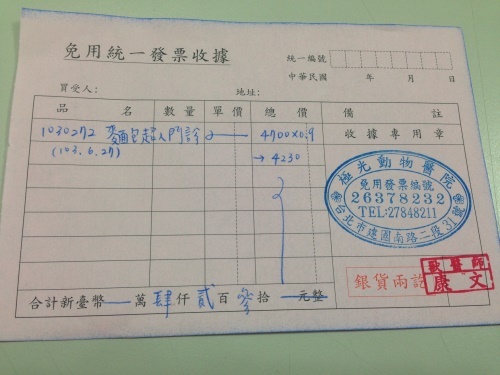 免用統一發票收據
統一編號
中華民國 年 月 日
買受人: 地址:
品名 數量 單價 總價 備註
1030272 麵包超人門診 4700×0.9
(103.6.27) → 4230
收據專用章
極光動物醫院
免用發票編號
26378232
TEL:27848211
台北市建國南路二段31號
銀貨兩訖
獸醫師
康文
合計新臺幣 萬肆仟貳百參拾 元整